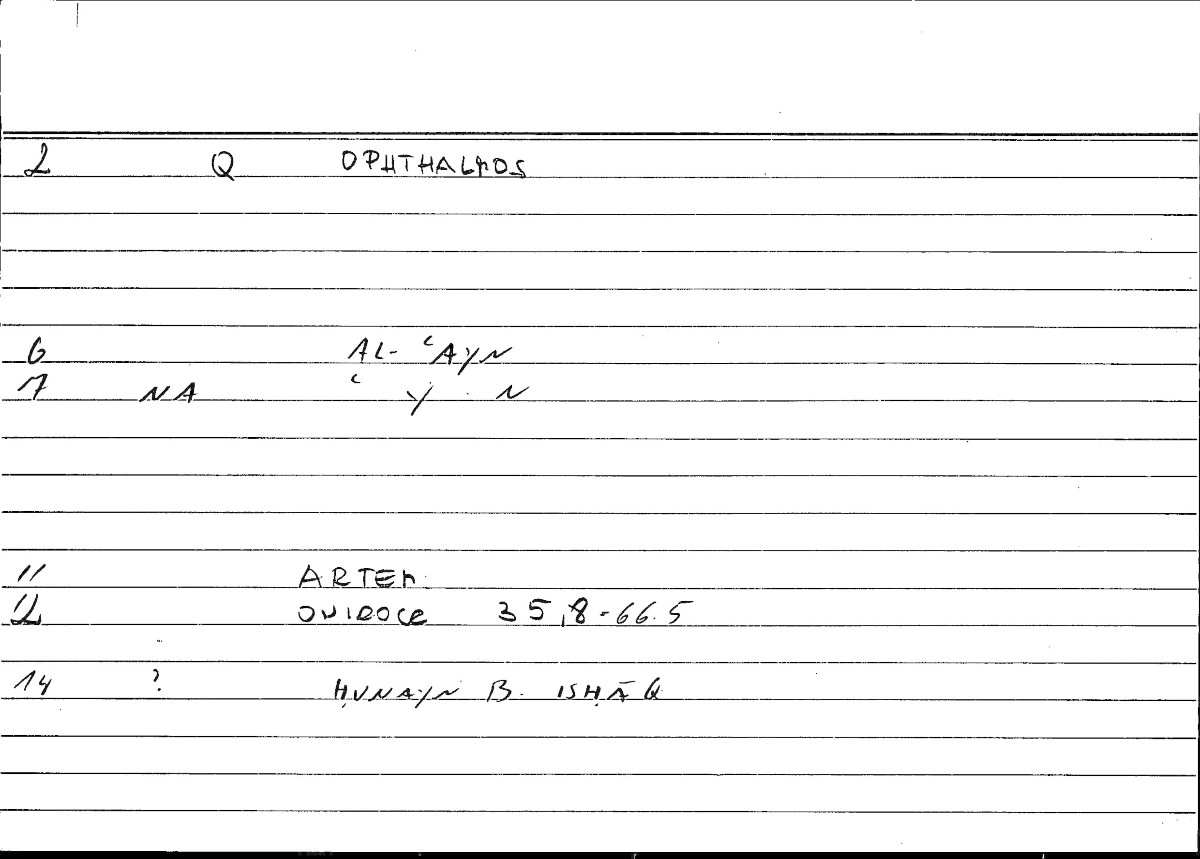 2 Q OPHTHALMOS
6 AL- ʿAYN
7 NA ʿ Y N
11 ARTEM
12 ONIROCR 35,8-66.5
14 ? ḤUNAYN B. ISḤĀQ